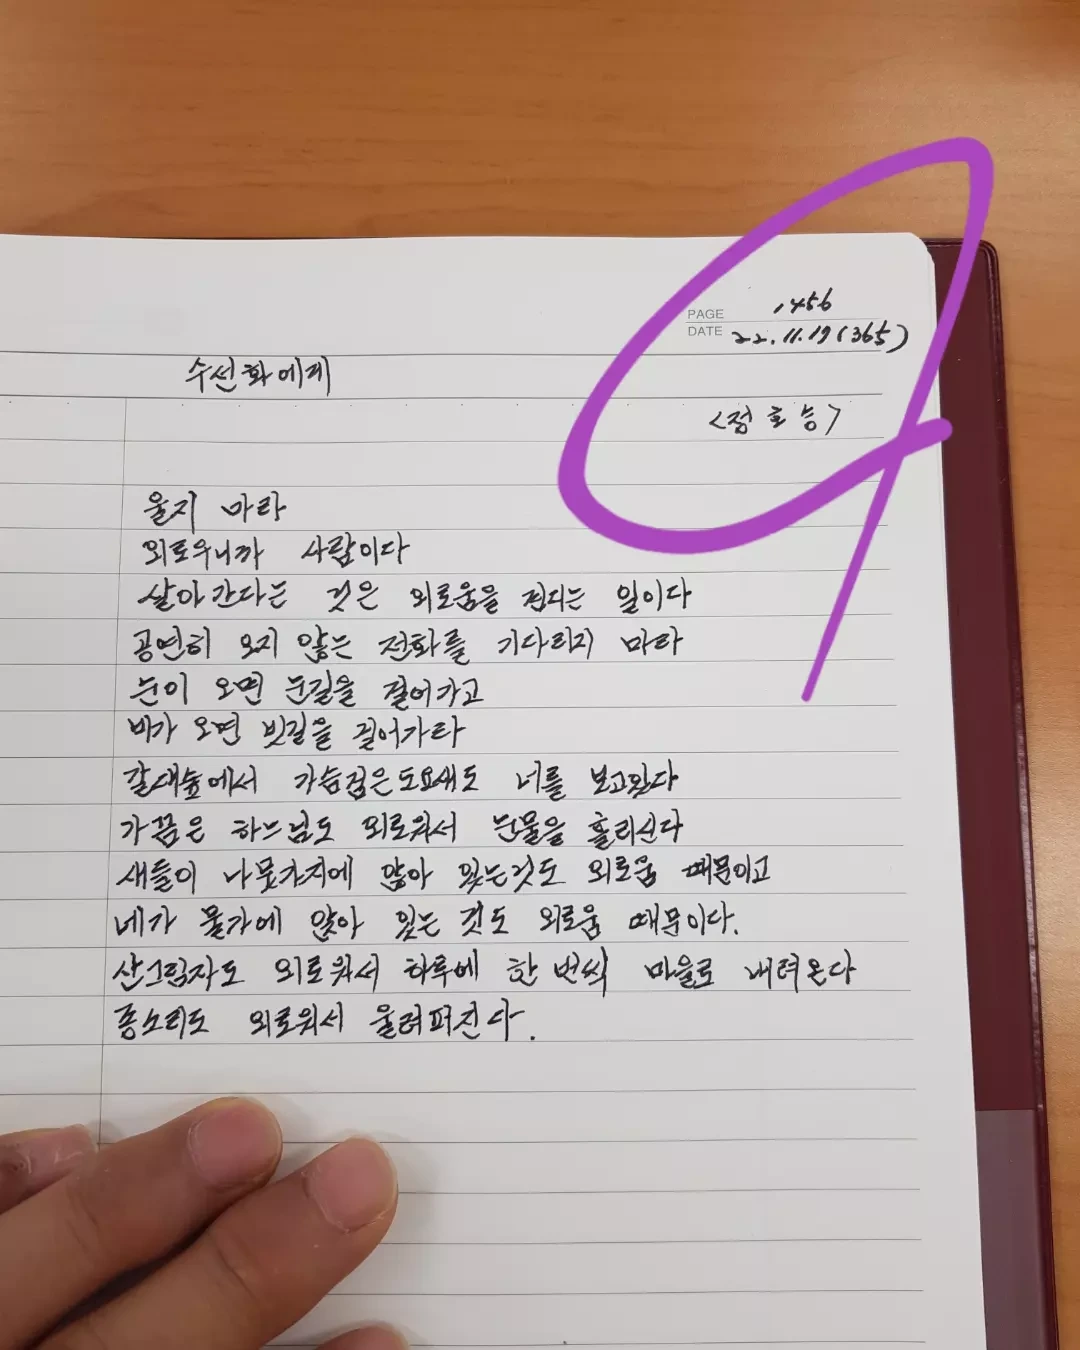 PAGE 1456
DATE 22.11.19(365)
수선화에게
<정호승>
울지 마라
외로우니까 사람이다
살아간다는 것은 외로움을 견디는 일이다
공연히 오지 않는 전화를 기다리지 마라
눈이 오면 눈길을 걸어가고
비가 오면 빗길을 걸어가라
갈대숲에서 가슴검은도요새도 너를 보고있다
가끔은 하느님도 외로워서 눈물을 흘리신다
새들이 나뭇가지에 앉아 있는것도 외로움 때문이고
네가 물가에 앉아 있는 것도 외로움 때문이다.
산그림자도 외로워서 하루에 한 번씩 마을로 내려온다
종소리도 외로워서 울려퍼진다.